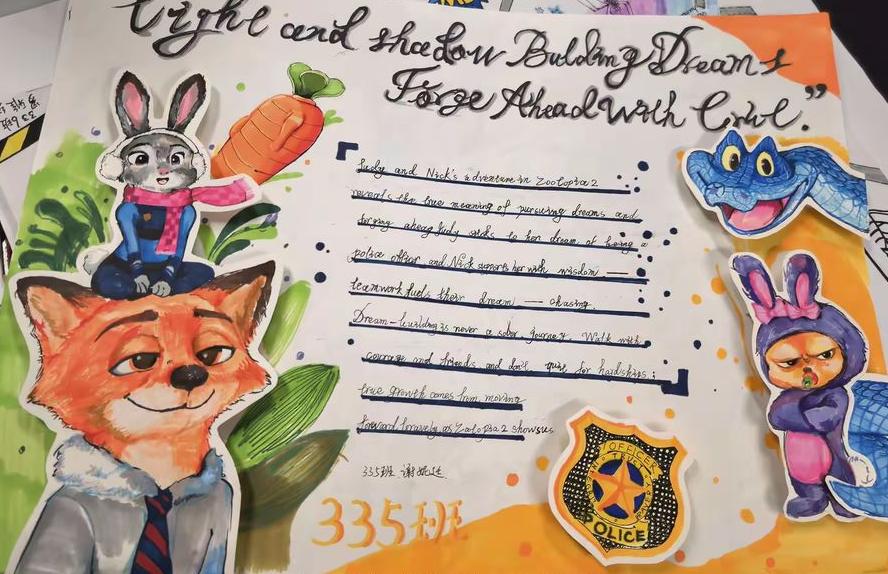 Light and shadow Bulding Dreams
Forge Ahead With Civil."
Judy and Nick's adventure in Zootopia 2
reveals the true meaning of pursuing dreams and
forging ahead Judy sticks to her dream of being a
police officer and Nick supports her with wisdom —
teamwork fuels their dream — chasing.
Dream-building is never a solo journey. Walk with
courage and friends and don't quit for hardships:
true growth comes from moving
forward bravely as Zootopia 2 shows us.
335班 谢
335班
OFFICER
TRUST
POLICE